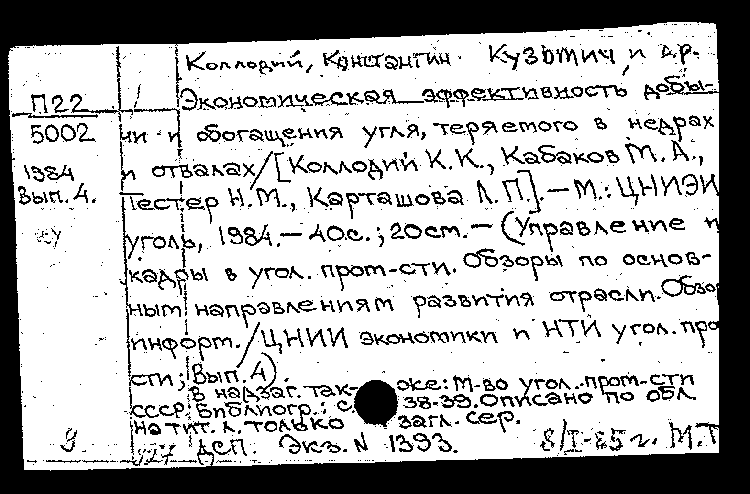 Коллодий, Константин Кузьмич и др.
П22 Экономическая эффективность добы-
5002 чи и обогащения угля, теряемого в недрах
1984 и отвалах/[Коллодий К.К., Кабаков М.А.,
Вып. 4. Пестер Н.М., Карташова Л.П.]. — М.: ЦНИЭИ
уголь, 1984. — 40с.; 20см. — (Управление и
кадры в угол. пром-сти. Обзоры по основ-
ным направлениям развития отрасли. Обзор
информ. / ЦНИИ экономики и НТИ угол. про
сти; Вып. 4).
В надзаг. так- же: М-во угол. пром-сти
СССР. Библиогр.: с. 38-39. Описано по обл.
На тит. л. только загл. сер.
9 927 ДСП. Экз. N 1393. 8/I-85г. М.Т